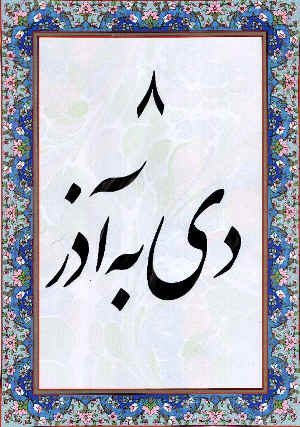 ۸
دی به آذر